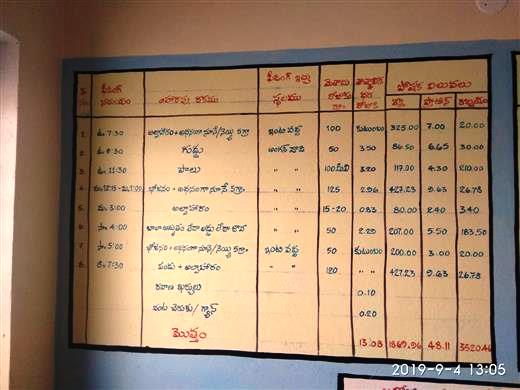 క్ర.సం. ఫీడింగ్ సమయం ఆహారపు రకము ఫీడింగ్ ఇచ్చు స్థలము మొత్తం రోజుకు గ్రా. తాత్కాలిక ధర రోజుకు పోషక విలువలు కెలో ప్రోటీన్ కాల్షియం
1 ఉ. 7:30 అల్పాహారం + అదనంగా నూనె/నెయ్యి 5గ్రా. ఇంటి వద్ద 100 కుటుంబం 325.00 7.00 20.00
2 ఉ. 8:30 గుడ్డు అంగన్ వాడి 50 3.50 86.50 6.65 30.00
3 ఉ. 11:30 పాలు " " 100మి.లీ 3.20 117.00 4.30 210.00
4 మ. 12:15 - మ. 1:00 భోజనం + అదనంగా నూనే 5గ్రా. " " 125 2.96 427.23 9.63 26.78
5 మ. 3:00 అల్పాహారం " " 15-20 0.83 80.00 2.40 3.40
6 సా. 4:00 బాలామృతం లేదా లడ్డు లేదా జావ " " 50 2.20 207.00 5.50 183.50
7 సా. 5:00 భోజనం + అదనంగా నూనె/నెయ్యి 5గ్రా. ఇంటి వద్ద 50 కుటుంబం 200.00 3.00 20.00
8 రా. 7:30 పండు + అల్పాహారం " " 120 " " 427.23 9.63 26.78
రవాణ ఖర్చులు 0.10
వంట చెరుకు/గ్యాస్ 0.20
మొత్తం 13.08 1869.96 48.11 3520.46
2019-9-4 13:05